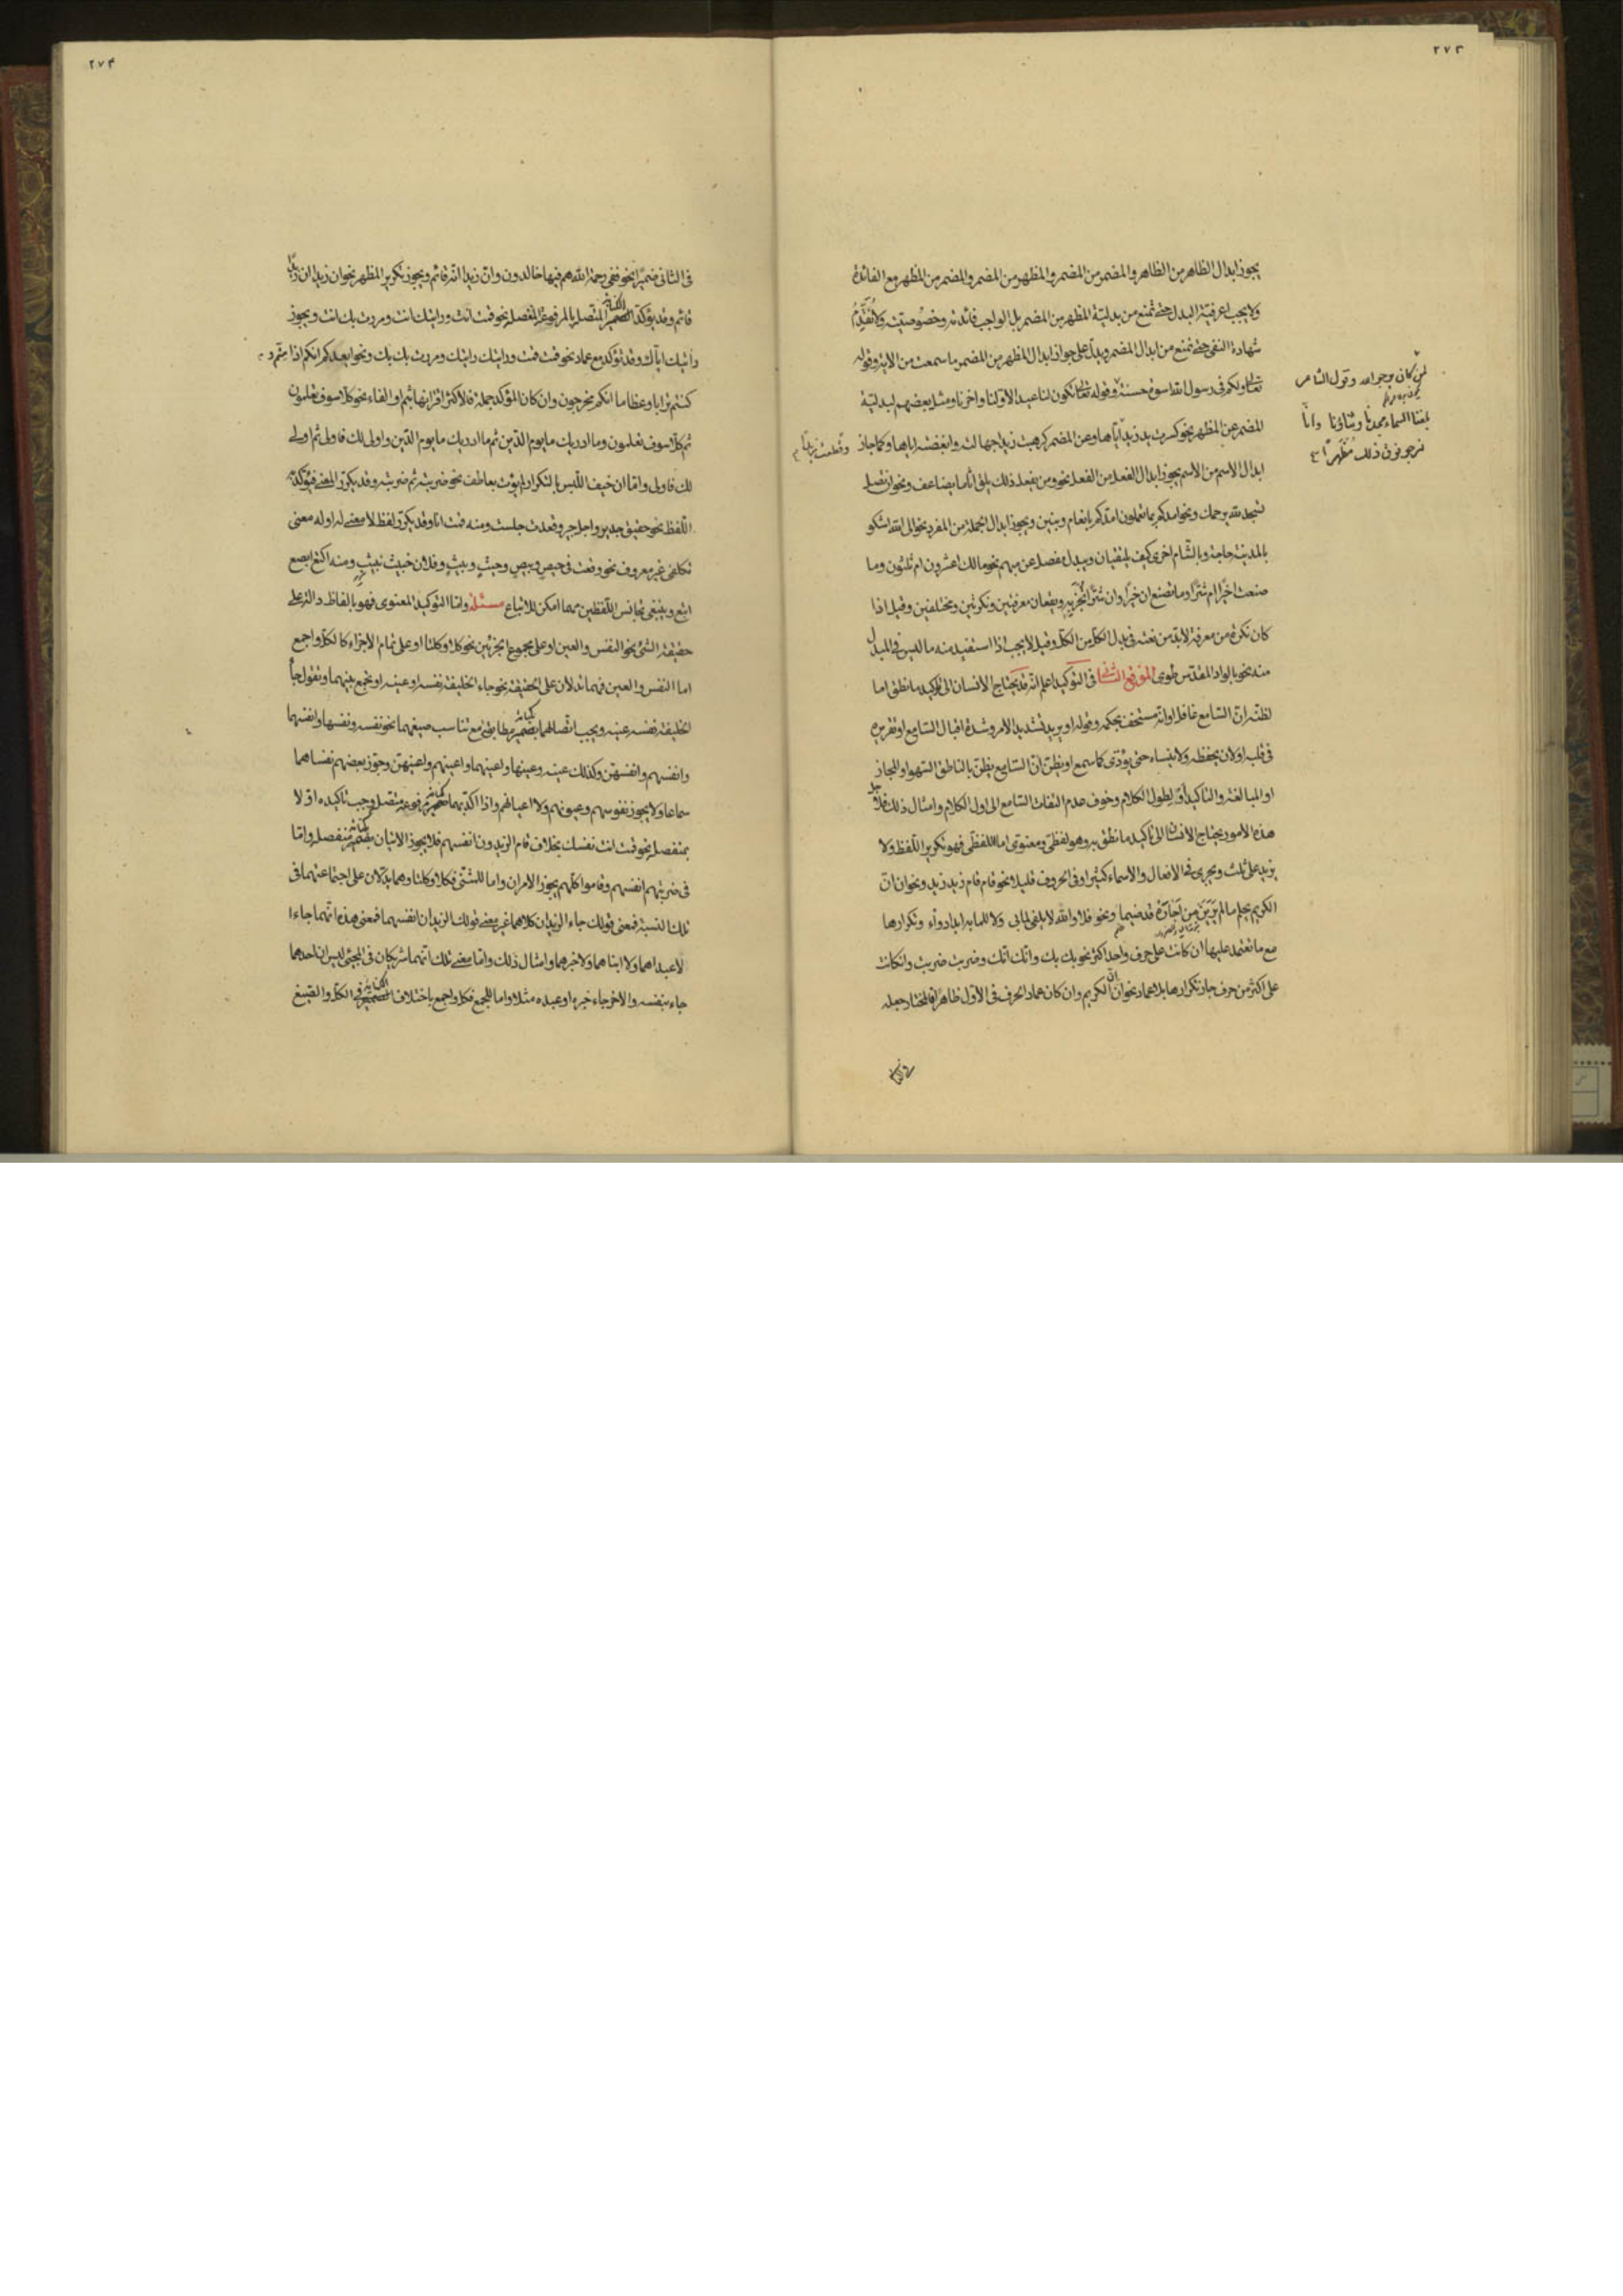 ٢٧٣
يجوز ابدال الظاهر من الظاهر والمضمر من المضمر والمظهر من المضمر والمضمر من المظهر مع الفائدة
ولا يجب اعرفية البدل حتى تمنع من بدلية المظهر من المضمر بل الواجب فائدته وخصوصيته ولا تقدم
شهادة النفى حتى تمنع من ابدال المضمر ويدل على جواز ابدال المظهر من المضمر ما سمعت من الاية وقوله
تعالى ولكم فى رسول الله اسوة حسنة وقوله تعالى تكون لنا عيدا لاولنا واخرنا ومثل بعضهم لبدلية
لمن كان يرجو الله وقول الشاعر
بلغنا السماء مجدنا وثناؤنا وانا
لنرجو فوق ذلك مظهرا
المضمر عن المظهر بنحو كسرت يد زيد اياها وعن المضمر كرهت زيدا جهالته وابغضته اياها وكما جاز
ابدال الاسم من الاسم يجوز ابدال الفعل من الفعل نحو ومن يفعل ذلك يلق اثاما يضاعف ونحو ان تصل
تسجد لله يرحمك ونحو امدكم بما تعلمون امدكم بانعام وبنين ويجوز ابدال الجملة من المفرد نحو الى الله اشكو
بالمدينة حاجة وبالشام اخرى كيف يلتقيان ويبدل مفصل عن مبهم نحو مالك اعشرون ام ثلثون وما
صنعت اخيرا ام شرا وما تصنع ان خيرا وان شرا تجز به ويقعان معرفتين ونكرتين ومختلفين وقيل اذا
كان نكرة من معرفة لابد من نعته فى بدل الكل من الكل وقيل لا يجب اذا استفيد منه ما ليس فى المبدل
منه نحو بالواد المقدس طوى الموقع الثانى فى التوكيد اعلم انه قد يحتاج الانسان الى تاكيد ما نطق اما
لظنه ان السامع غافل او انه مستخف بحكمه وقوله او يريد تشديد الامر وشدة اقبال السامع او تقريره
فى قلبه او لان يحفظه ولا ينساه حتى يؤدى كما سمع او يظن ان السامع يظن بالناطق السهو او المجاز
او المبالغة والتاكيد او لطول الكلام وخوف عدم التفات السامع الى اول الكلام وامثال ذلك فلاجل
هذه الامور يحتاج الانسان الى تاكيد ما نطق به وهو لفظى ومعنوى اما اللفظى فهو تكرير اللفظ ولا
يزيد على ثلث ويجرى فى الافعال والاسماء كثيرا وفى الحروف قليلا نحو قام قام زيد زيد ونحو ان ان
الكريم يحلم ما لم يرين من اجاره قد ضيما ونحو فلا والله لا يلفى لما بى ولا للما بهم ابدا دواء وتكرارها
مع ما تعتمد عليها ان كانت على حرف واحد اكثر نحو بك بك وانك انك وضربت ضربت وان كانت
على اكثر من حرف جاز تكرارها بلا عماد نحو ان ان الكريم وان كان عماد الحرف فى الاول ظاهرا فالمختار جعله
٢٧٤
فى الثانى ضميرا نحو ففى رحمة الله هم فيها خالدون وان زيدا انه قائم ويجوز تكرير المظهر نحو ان زيدا ان زيدا
قائم وقد يؤكد الضمير المتصل بالمرفوع المنفصل نحو قمت انت ورايتك انت ومررت بك انت ويجوز
رايتك اياك وقد تؤكد مع عماد نحو قمت قمت ورايتك رايتك ومررت بك بك ونحو ايعدكم انكم اذا متم و
كنتم ترابا وعظاما انكم مخرجون وان كان المؤكد جملة فالاكثر اقترانها بثم او الفاء نحو كلا سوف تعلمون
ثم كلا سوف تعلمون وما ادريك ما يوم الدين ثم ما ادريك ما يوم الدين واولى لك فاولى ثم اولى
لك فاولى واما ان خيف اللبس بالتكرار لم يؤت بعاطف نحو ضربته ثم ضربته وقد يكرر المعنى فيؤكد به
اللفظ نحو حقيق جدير واجل جير وقعدت جلست ومنه قمت انا وقد يكرر لفظ لا معنى له او له معنى
تكلفى غير معروف نحو وقعت فى حيص وبيص وحيث وبيث وفلان خبيث نبيث ومنه اكتع ابصع
ابتع وينبغى تجانس اللفظين مهما امكن للاتباع مسئلة واما التوكيد المعنوى فهو بالفاظ دالة على
حقيقة الشئ نحو النفس والعين او على مجموع الجزئين نحو كلا وكلتا او على تمام الاجزاء كالكل واجمع
اما النفس والعين فهما تدلان على الحقيقة نحو جاء الخليفة نفسه او عينه او تجمع بينهما وتقول جاء
الخليفة نفسه عينه ويجب اتصالهما بضمير مطابق مع تناسب صيغهما نحو نفسه ونفسها وانفسهما
وانفسهم وانفسهن وكذلك عينه وعينها واعينهما واعينهم واعينهن وجوز بعضهم نفساهما
سماعا ولا يجوز نفوسهم وعيونهم ولا اعيانهم واذا اكد بهما ضمير مرفوع متصل وجب تاكيده اولا
بمنفصل نحو قمت انت نفسك بخلاف قام الزيدون انفسهم فلا يجوز الاتيان بضمير منفصل واما
فى ضربتهم انفسهم وقاموا كلهم يجوز الامران واما للمثنى فكلا وكلتا وهما يدلان على اجتماعهما فى
تلك النسبة فمعنى قولك جاء الزيدان كلاهما غير معنى قولك الزيدان انفسهما فمعنى هذه انهما جاءا
لا عبداهما ولا ابناهما ولا خبرهما وامثال ذلك واما معنى تلك انهما شريكان فى المجئ ليس ان احدهما
جاء بنفسه والاخر جاء خبره او عبده مثلا واما للجمع فكل واجمع باختلاف الضمير فى الكل والصيغ